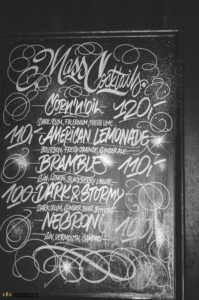 Mass Cocktails
Corn'n'oil 120,-
Dark Rum, Falernum, Fresh Lime
110,- American Lemonade
Bourbon, Fresh Orange, Ginger Ale
Bramble 110,-
Gin, Lemon, Blackberry Liquor
100,- Dark & Stormy
Dark Rum, Ginger Beer, Bitters
Negroni
Gin, Vermouth, Campari